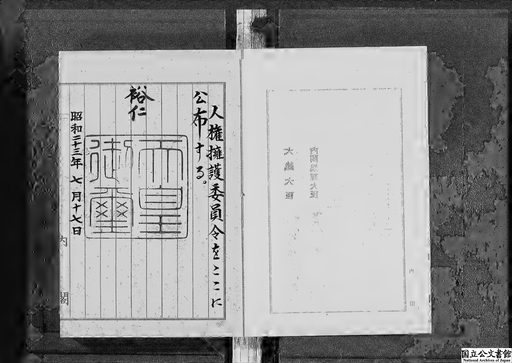 人権擁護委員令をここに
公布する。
裕仁
天皇
御璽
昭和二十三年七月十七日
内閣
内閣
国立公文書館
National Archives of Japan